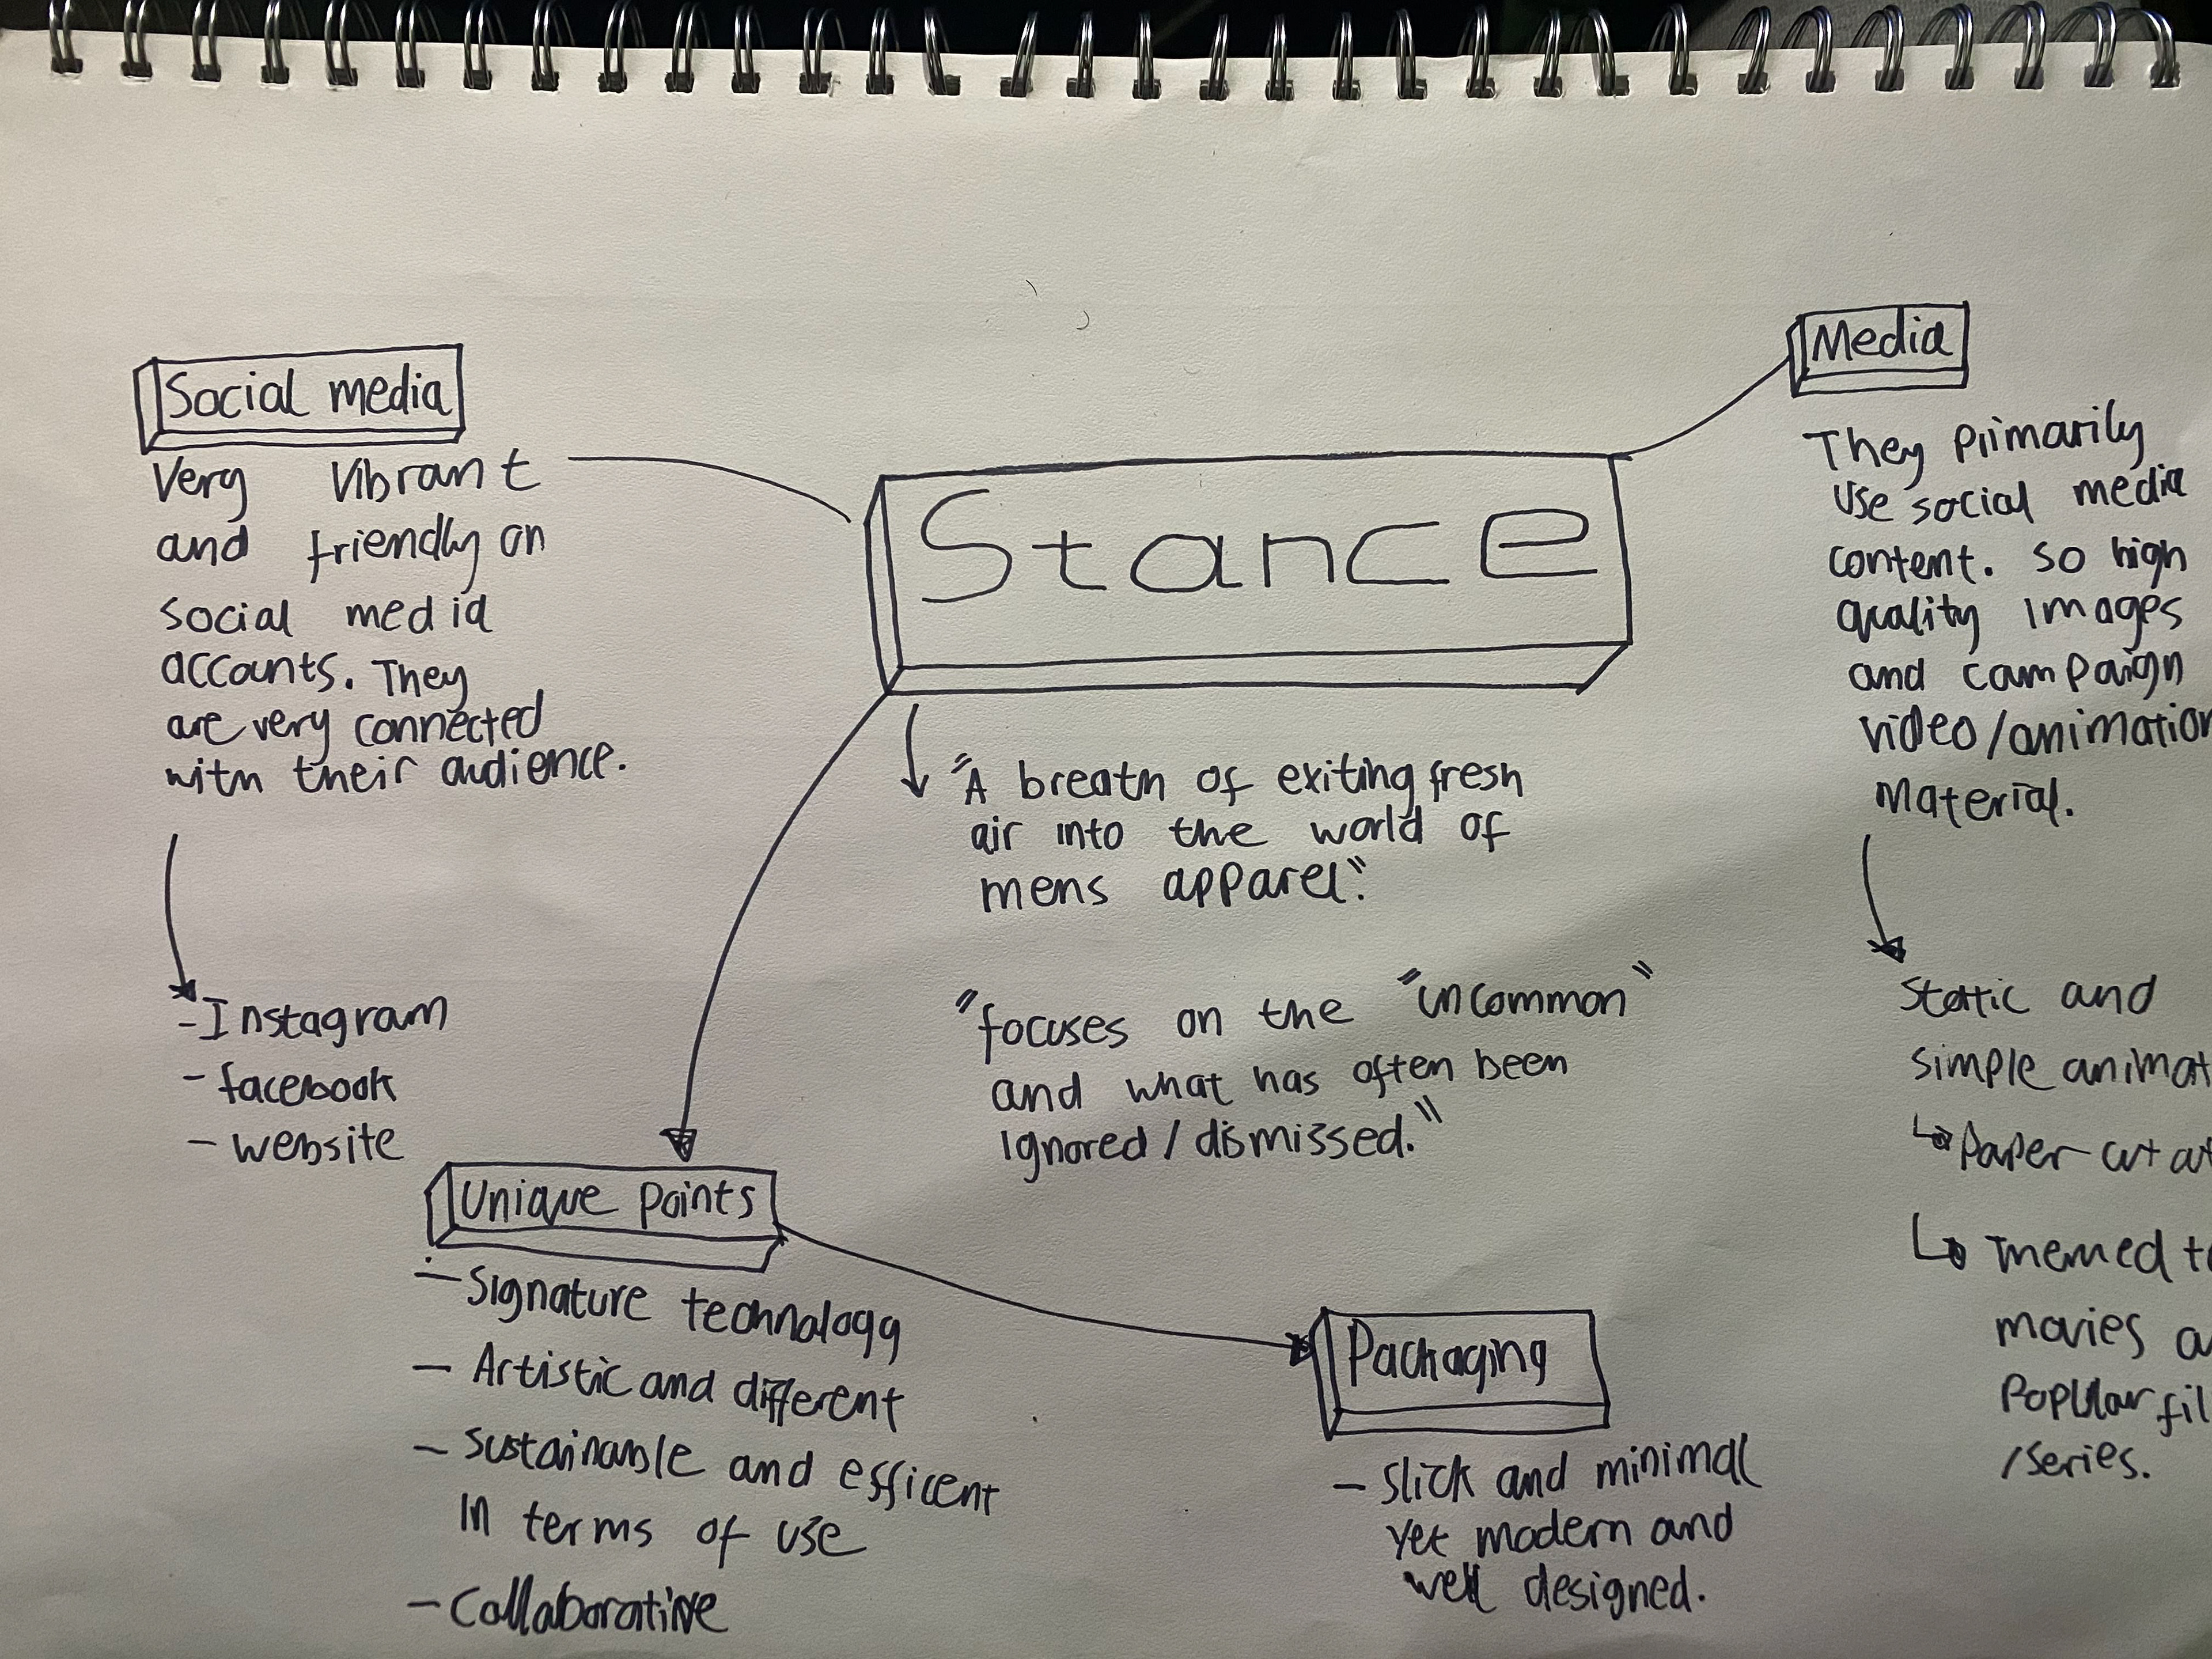 Social media
Very vibrant
and friendly on
social media
accounts. They
are very connected
with their audience.
-Instagram
- facebook
- website
Stance
"A breath of exiting fresh
air into the world of
mens apparel."
"focuses on the "uncommon"
and what has often been
ignored / dismissed."
Media
They primarily
use social media
content. so high
quality images
and campaign
video/animation
material.
Static and
simple animat
Paper-cut out
Themed to
movies
Popular fil
/series.
Unique points
- Signature technology
- Artistic and different
- Sustainable and efficent
in terms of use
- Collaborative
Packaging
- Slick and minimal
yet modern and
well designed.